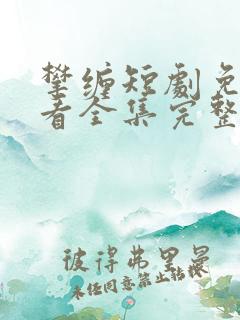 攀缠短劇免
看全集完整
彼得弗里曼
未经同意禁止转载